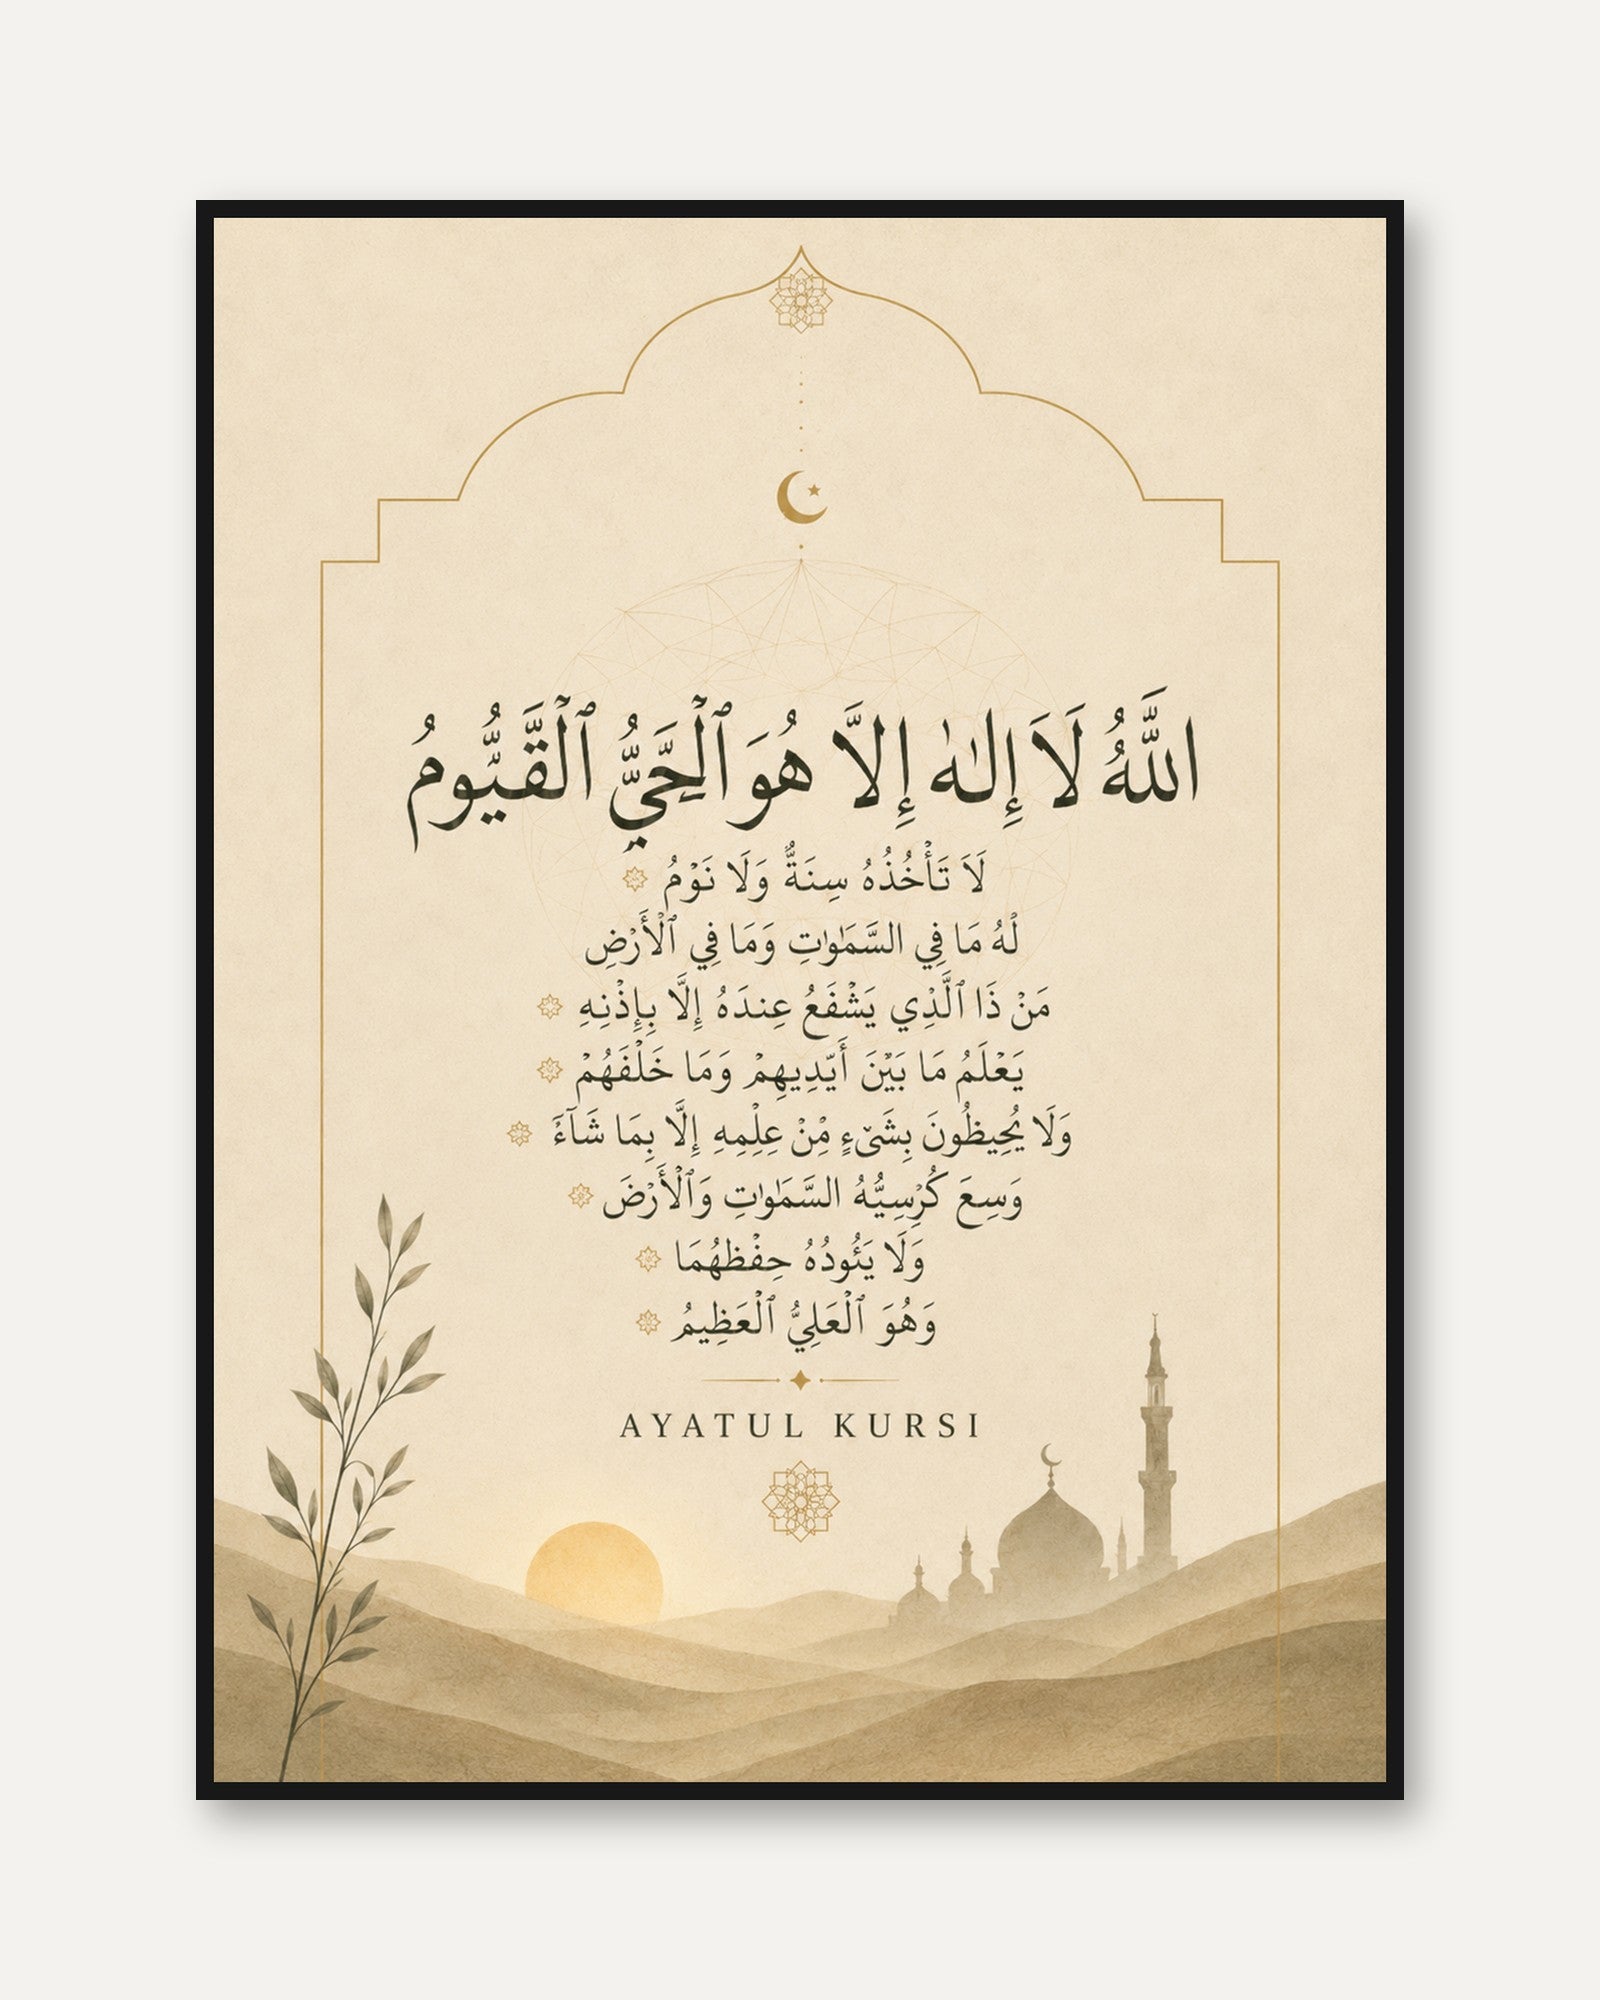 اللَّهُ لَا إِلَٰهَ إِلَّا هُوَ ٱلْحَيُّ ٱلْقَيُّومُ
لَا تَأْخُذُهُ سِنَةٌ وَلَا نَوْمُ
لَهُ مَا فِي السَّمَٰوَٰتِ وَمَا فِي ٱلْأَرْضِ
مَنْ ذَا ٱلَّذِي يَشْفَعُ عِندَهُ إِلَّا بِإِذْنِهِ
يَعْلَمُ مَا بَيْنَ أَيّدِيهِمْ وَمَا خَلْفَهُمْ
وَلَا يُحِيظُونَ بِشَىّءٍ مِّنْ عِلِمِهِ إِلَّا بِمَا شَآءَ
وَسِعَ كُرْسِيُّهُ السَّمَٰوَٰتِ وَٱلْأَرْضَ
وَلَا يَئُودُهُ حِفْظهُمَا
وَهُوَ ٱلْعَلِيُّ ٱلْعَظِيمُ
AYATUL KURSI